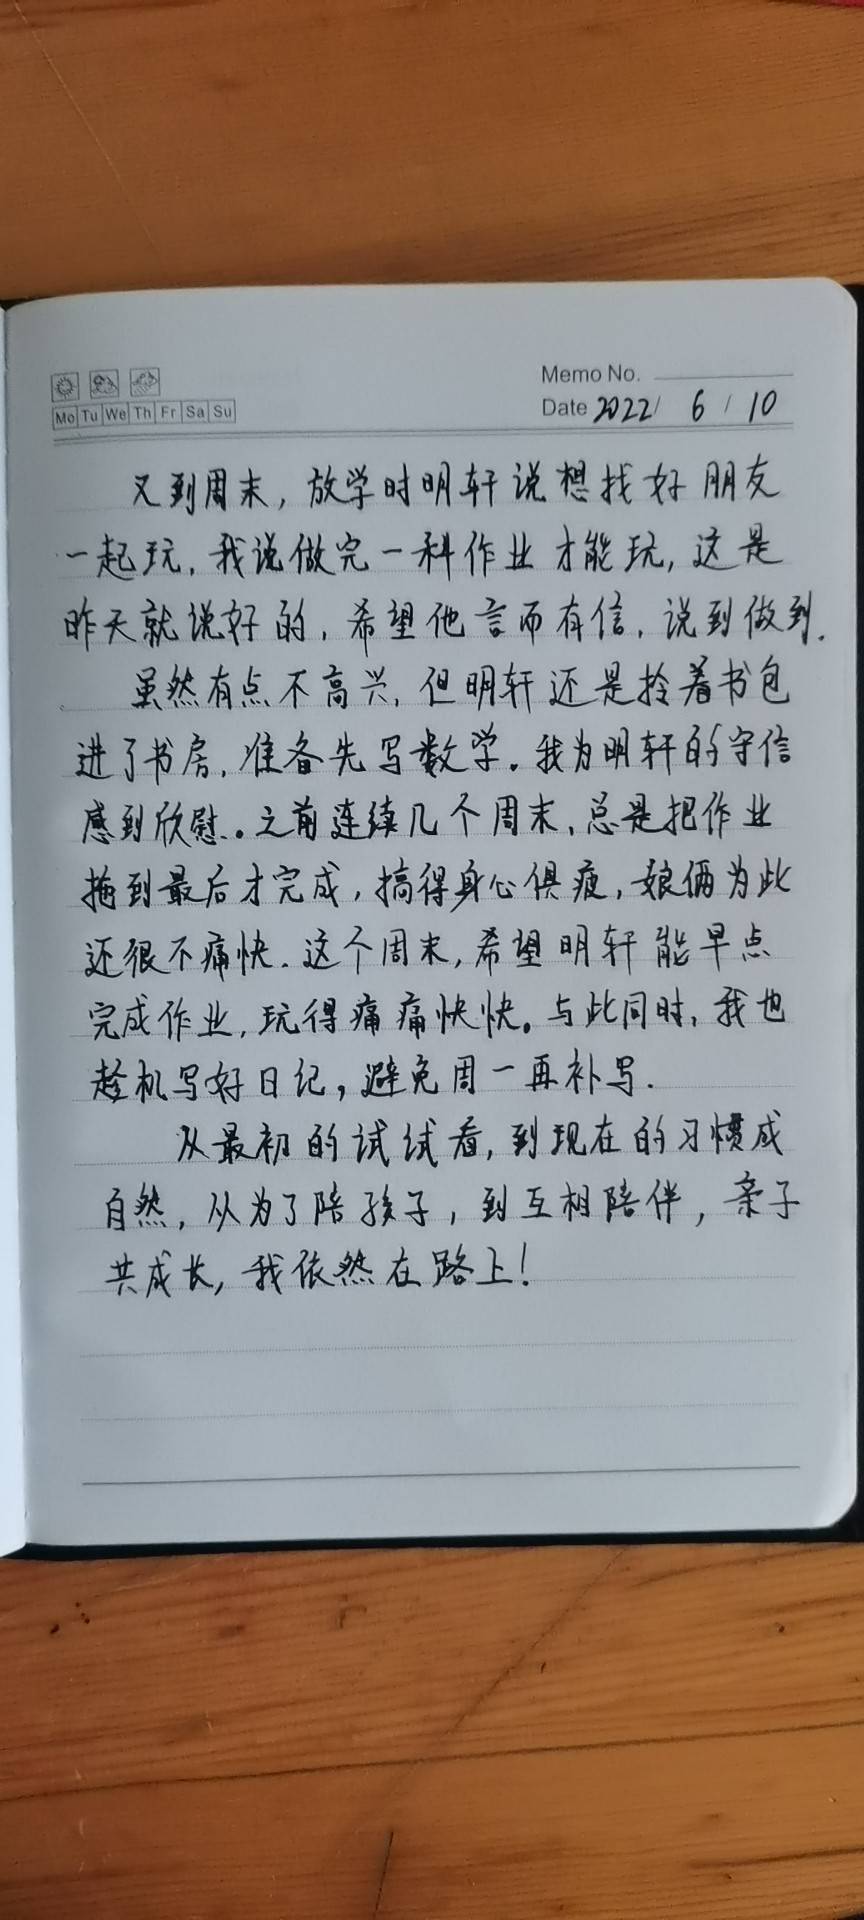 Memo No.
Mo Tu We Th Fr Sa Su
Date 2022/ 6 / 10
又到周末，放学时明轩说想找好朋友
一起玩，我说做完一科作业才能玩，这是
昨天就说好的，希望他言而有信，说到做到.
虽然有点不高兴，但明轩还是拎着书包
进了书房，准备先写数学。我为明轩的守信
感到欣慰。之前连续几个周末，总是把作业
拖到最后才完成，搞得身心俱疲，娘俩为此
还很不痛快. 这个周末，希望明轩能早点
完成作业，玩得痛痛快快。与此同时，我也
趁机写好日记，避免周一再补写.
从最初的试试看，到现在的习惯成
自然，从为了陪孩子，到互相陪伴，亲子
共成长，我依然在路上！